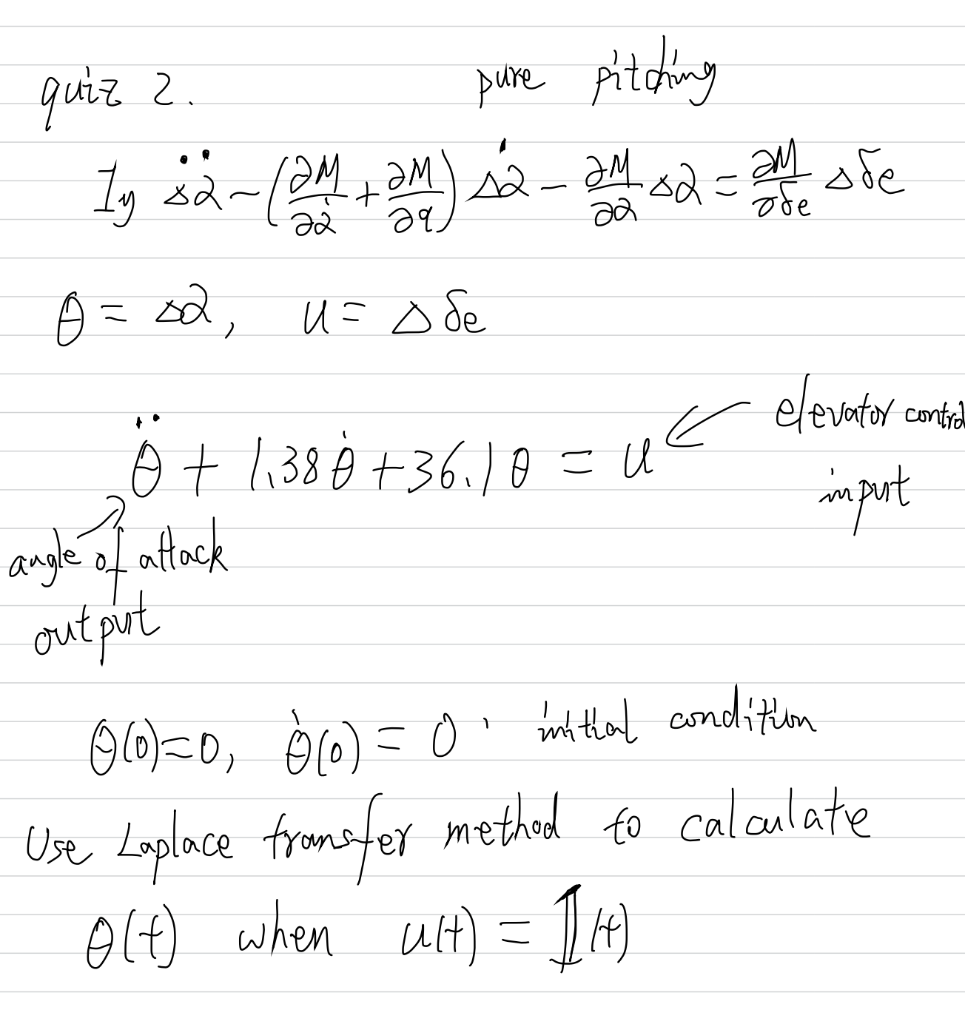 quiz 2. pure pitching
Iy Δα̈ - (∂M/∂α̇ + ∂M/∂q) Δα̇ - ∂M/∂α Δα = ∂M/∂δe Δδe
θ = Δα, u = Δδe
elevator control
θ̈ + 1.38 θ̇ + 36.1 θ = u
input
angle of attack
output
θ(0)=0, θ̇(0) = 0 : initial condition
Use Laplace transfer method to calculate
θ(t) when u(t) = 𝟙(t)